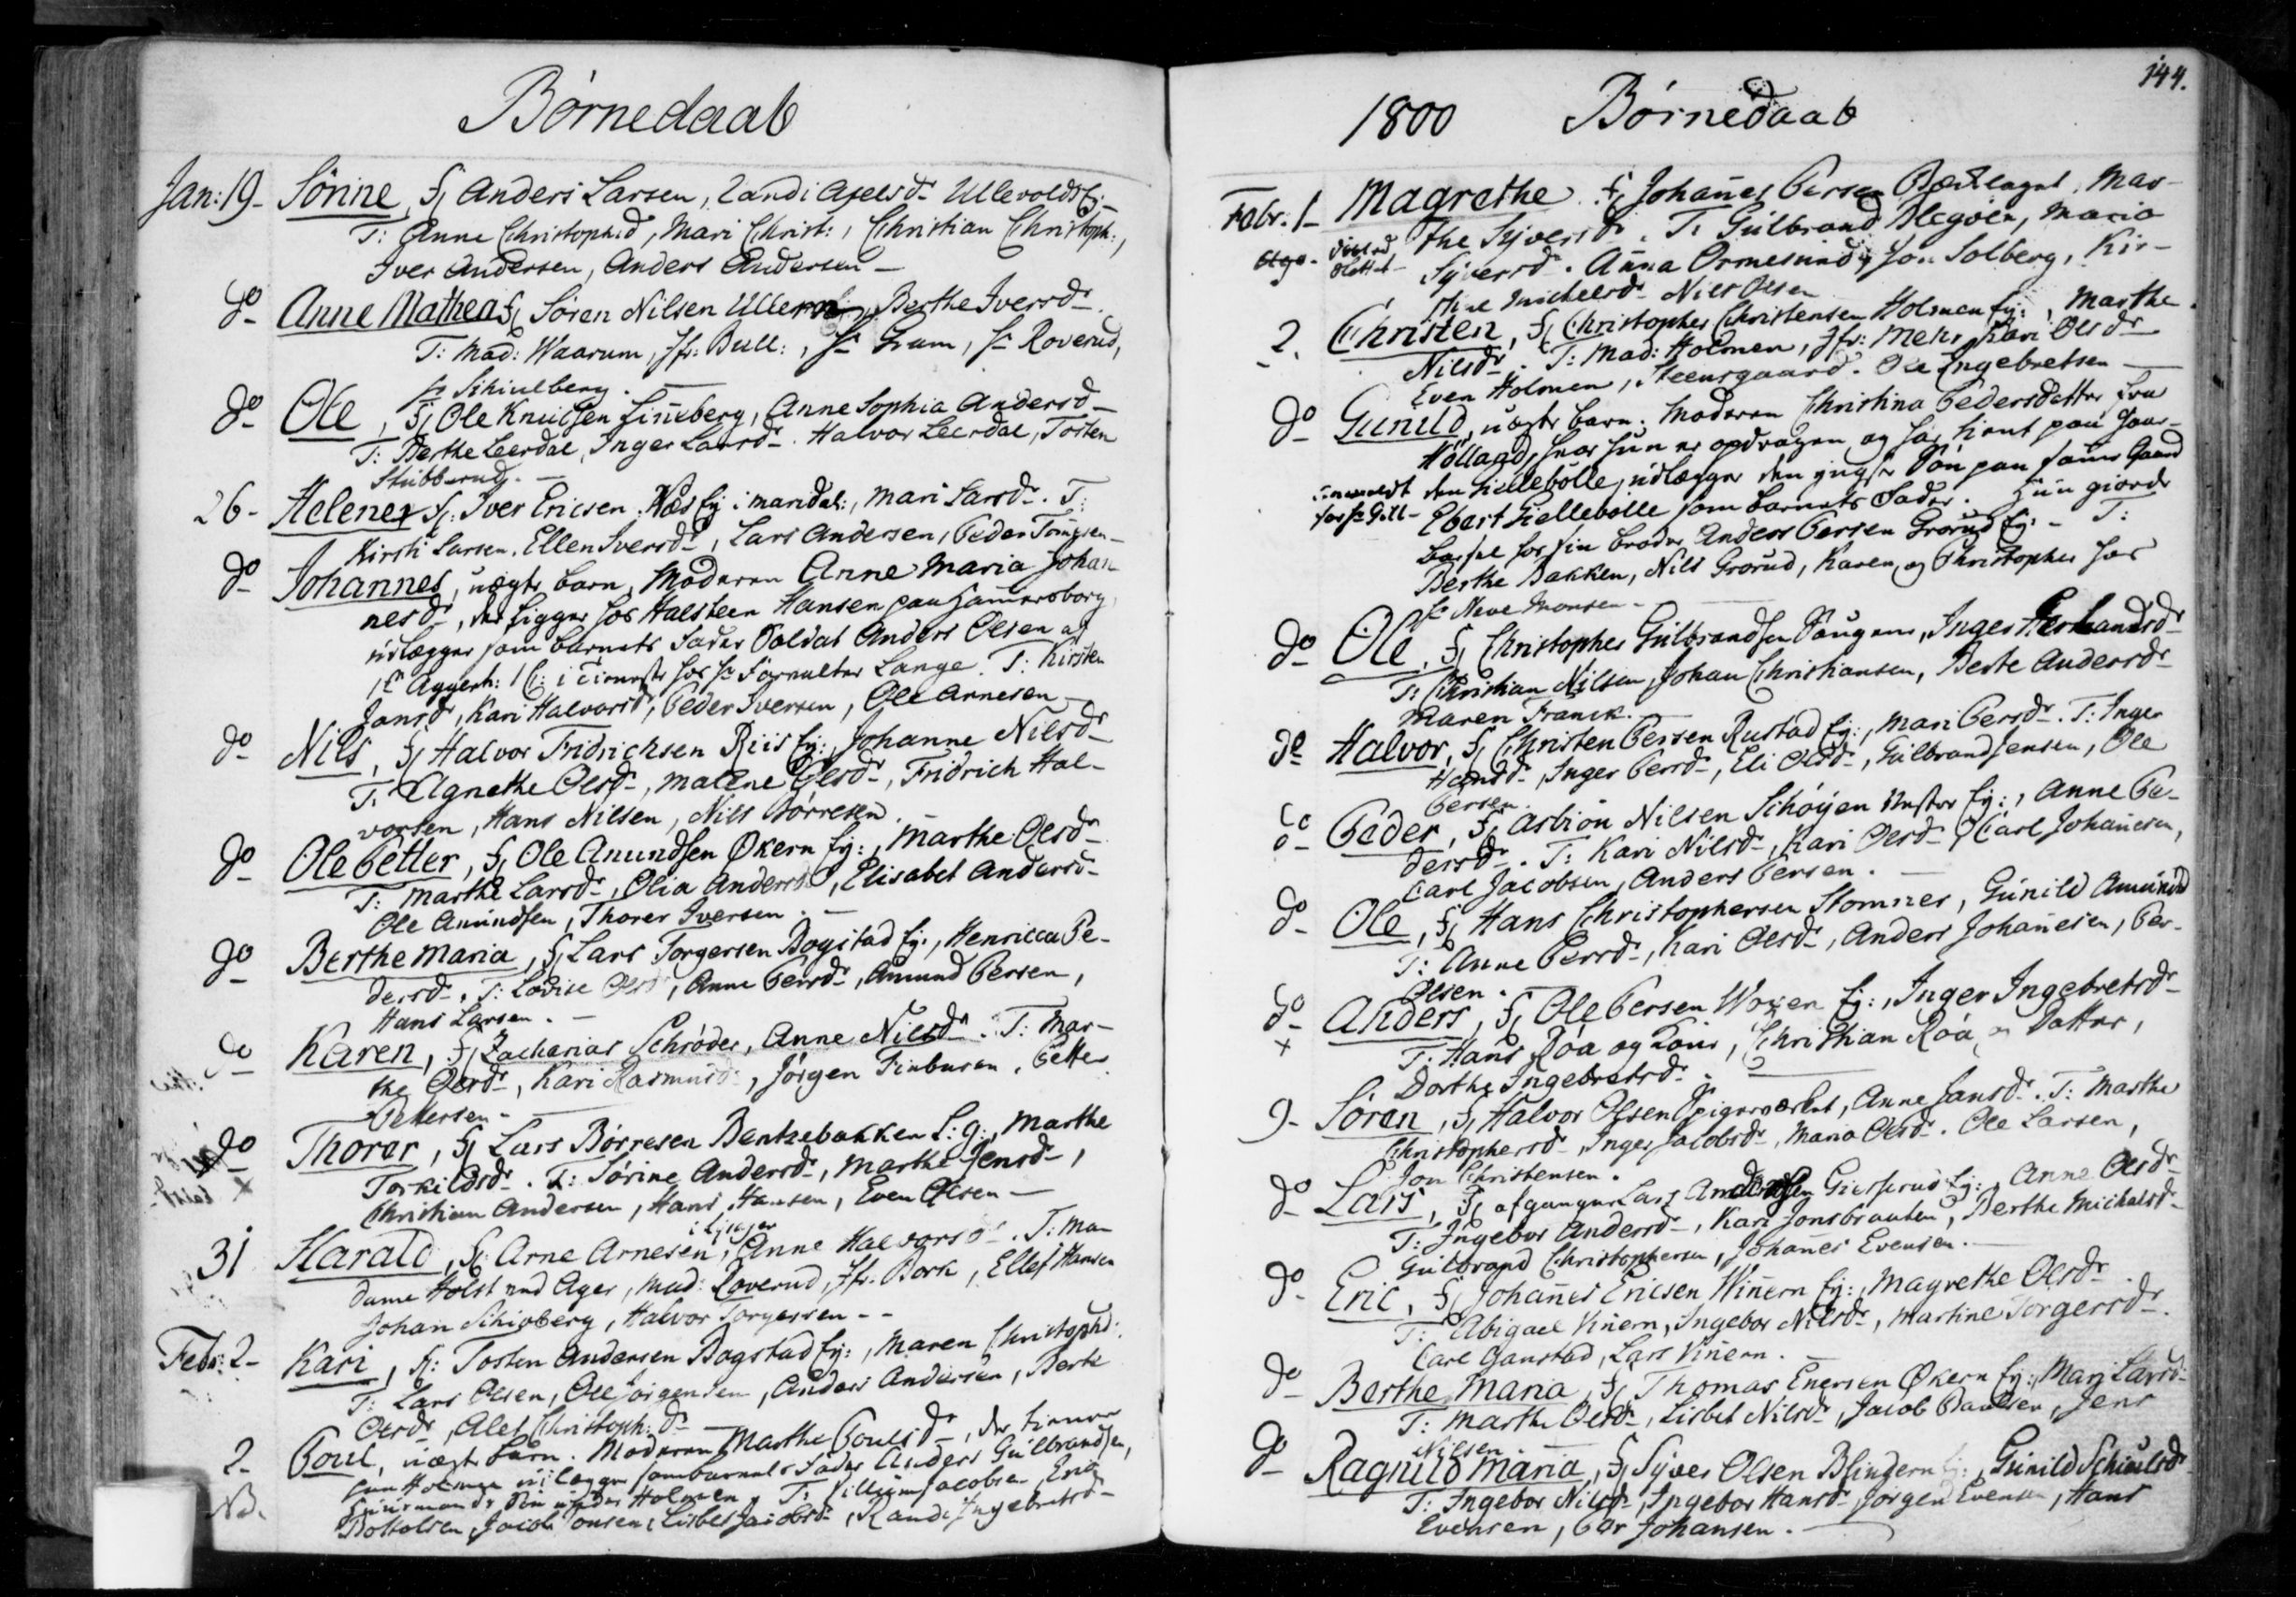 Børnedaab
Jan: 19- Sørine, f: Anders Larsen, Randi Axelsdr Ullevolds Ey:
T: Anne Christophd, Mari Christ:, Christian Christoph:,
Iver Andersen, Anders Andersen -
do Anne Mathea f: Søren Nilsen Ullern, Berthe Iversdr.
T: Mad: Waarum, Jfr: Bull:, Hr Gram, Hr Roverud,
Hr Schiulberg.
do Ole, f: Ole Knudsen Linneberg, Anne Sophia Andersd-
T: Berthe Leerdal, Inger Larsdr. Halvor Leerdal, Tosten
Stubberud.
26- Helene f: Iver Ericsen Næs Ey i Maridal:, Mari Larsdr. T:
Kirsti Larsen, Ellen Iversdr, Lars Andersen, Peder
do Johannes, uægte barn, Moderen Anne Maria Johan
nesdr, der ligger hos Halsteen Hansen paa Hammersborg,
udlægger som barnets Fader Soldat Anders Olsen af
Aggerh: i tieneste hos Hr Lange. T: Kirsten
Jansdr, Kari Halvorsd, Peder Iversen, Ole Arnesen -
do Nils, f: Halvor Fridrichsen Riis Ey:, Johanne Nilsdr
T: Agnethe Olsdr, Malene Olsdr, Fridrich Hal-
vorsen, Hans Nilsen, Nils Børresen.
do Ole Petter, f: Ole Anundsen Økern Ey:, Marthe Olsdr
T: Marthe Larsdr, Olia Andersdr, Elisabet Andersd-
Ole Amundsen, Thorer Iversen. -
do Berthe Maria, f: Lars Torgersen Bogstad Ey:, Henricca Pe-
dersdr. T: Lovise Olsdr, Anne Persdr, Amund Persen,
Hans Larsen. -
do Karen, f: Zacharias Schrøder, Anne Nilsdr. T: Mar-
the Olsdr, Kari Rasmusdr, Jørgen Finbusen, Petter
Pettersen -
do Thorer, f: Lars Børresen Bentzebakken S: g:, Marthe
Torkildsdr. T: Sørine Andersdr, Marthe Jensdr,
Christian Andersen, Hans Hansen, Even Olsen -
31 Harald, f: Arne Arnesen, Anne Halvorsdr. T: Ma
dame Holst ved Ager, Mad: Loverud, Jfr: Bork, Ellef Hansen
Johan Schioberg, Halvor Torgersen - -
Febr: 2- Kari, f: Tosten Andersen Bogstad Ey:, Maren Christophd:
T: Lars Olsen, Ole Jørgensen, Anders Andersen, Berte
Olsdr, Alet Christoph: dr -
2- Poul, uægte barn. Moderen Marthe Poulsdr, der tiener
paa Holmen udlægger som barnets Fader Anders Gulbrandsen,
Søn under Holmen. T: Jacobsen, Eric
NB. Bottolsen, Jacob Tonsen, Lisbet Jacobsdr, Randi Ingebretsdr
144.
1800 Børnedaab
Febr: 1- Magrethe f: Johannes Persen, Mar-
the Syversdr. T: Gulbrand, Maria
Syversdr. Anna Ormesund, Jon Solberg, Kir-
stine Michelsdr Nils Olsen
2. Christen, f: Christopher Christensen Holmen Ey:, Marthe
Nilsdr. T: Mad: Holmen, Jfr: Mehr, Kari Olsdr
Even Holmen, Steensgaard. Ole Engebretsen -
do Gunild, uægte barn. Moderen Christina Pedersdatter fra
Høllaad, hvor hun er opdragen og har tient paa Gaar-
den Hiellebølle, udlægger den yngste Søn paa samme Gaard
Ebert Hiellebølle som barnets Fader. Hun giorde
barsel hos sin broder Anders Persen Grorud Ey: - T:
Berthe Bakken, Nils Grorud, Karen, og Christopher hos
Hr Neve Monsen -
do Ole, f: Christopher Gulbrandsen Saugene, Inger
T: Christian Nilsen, Johan Christiansen, Berte Andersdr
Maren Franck.
do Halvor, f: Christen Persen Rustad Ey:, Mari Persdr. T: Inger
Hansdr, Inger Persdr, Eli Olsdr, Gulbrand Jensen, Ole
Persen.
do Peder, f: Asbiøn Nilsen Schøyen Ey:, Anne Pe-
dersdr. T: Kari Nilsdr, Kari Olsdr, Carl Johannesen,
Carl Jacobsen, Anders Persen. -
do Ole, f: Hans Christophersen Stomnes, Gunild Amundd
T: Anne Persdr, Kari Olsdr, Anders Johannesen, Per
Olsen. -
do Anders, f: Ole Persen Woxen Ey:, Inger Ingebretsdr
x T: Hans Røa og Kone, Christian Røa, og Datter,
Dorthe Ingebretsdr.
9- Søren, f: Halvor Olsen, Anne Jansdr. T: Marthe
Christophersdr, Inger Jacobsdr, Maria Olsdr. Ole Larsen,
Jon Christensen.
do Lars, f: afgangne Lars Andersen Ey:, Anne Olsdr
T: Ingebor Andersdr, Kari Jonsbraaten, Berthe Michelsdr
Gulbrand Christophersen, Johannes Evensen. -
do Eric, f: Johannes Ericsen Winnern Ey:, Magrethe Olsdr
T: Abigael Vinnern, Ingebor Nilsdr, Martine Torgersdr.
Carl Ganstad, Lars Vinnern.
do Berthe Maria, f: Thomas Enersen Økern Ey:, Mari Larsd:
T: Marthe Olsdr, Lisbet Nilsdr, Jacob Paulsen, Jens
Nilsen.
do Ragnild Maria, f: Syver Olsen Blindern Ey:, Gunild Schiulsdr
T: Ingebor Nilsdr, Ingebor Hansdr, Jørgen Evensen, Hans
Evensen, Per Johansen. -